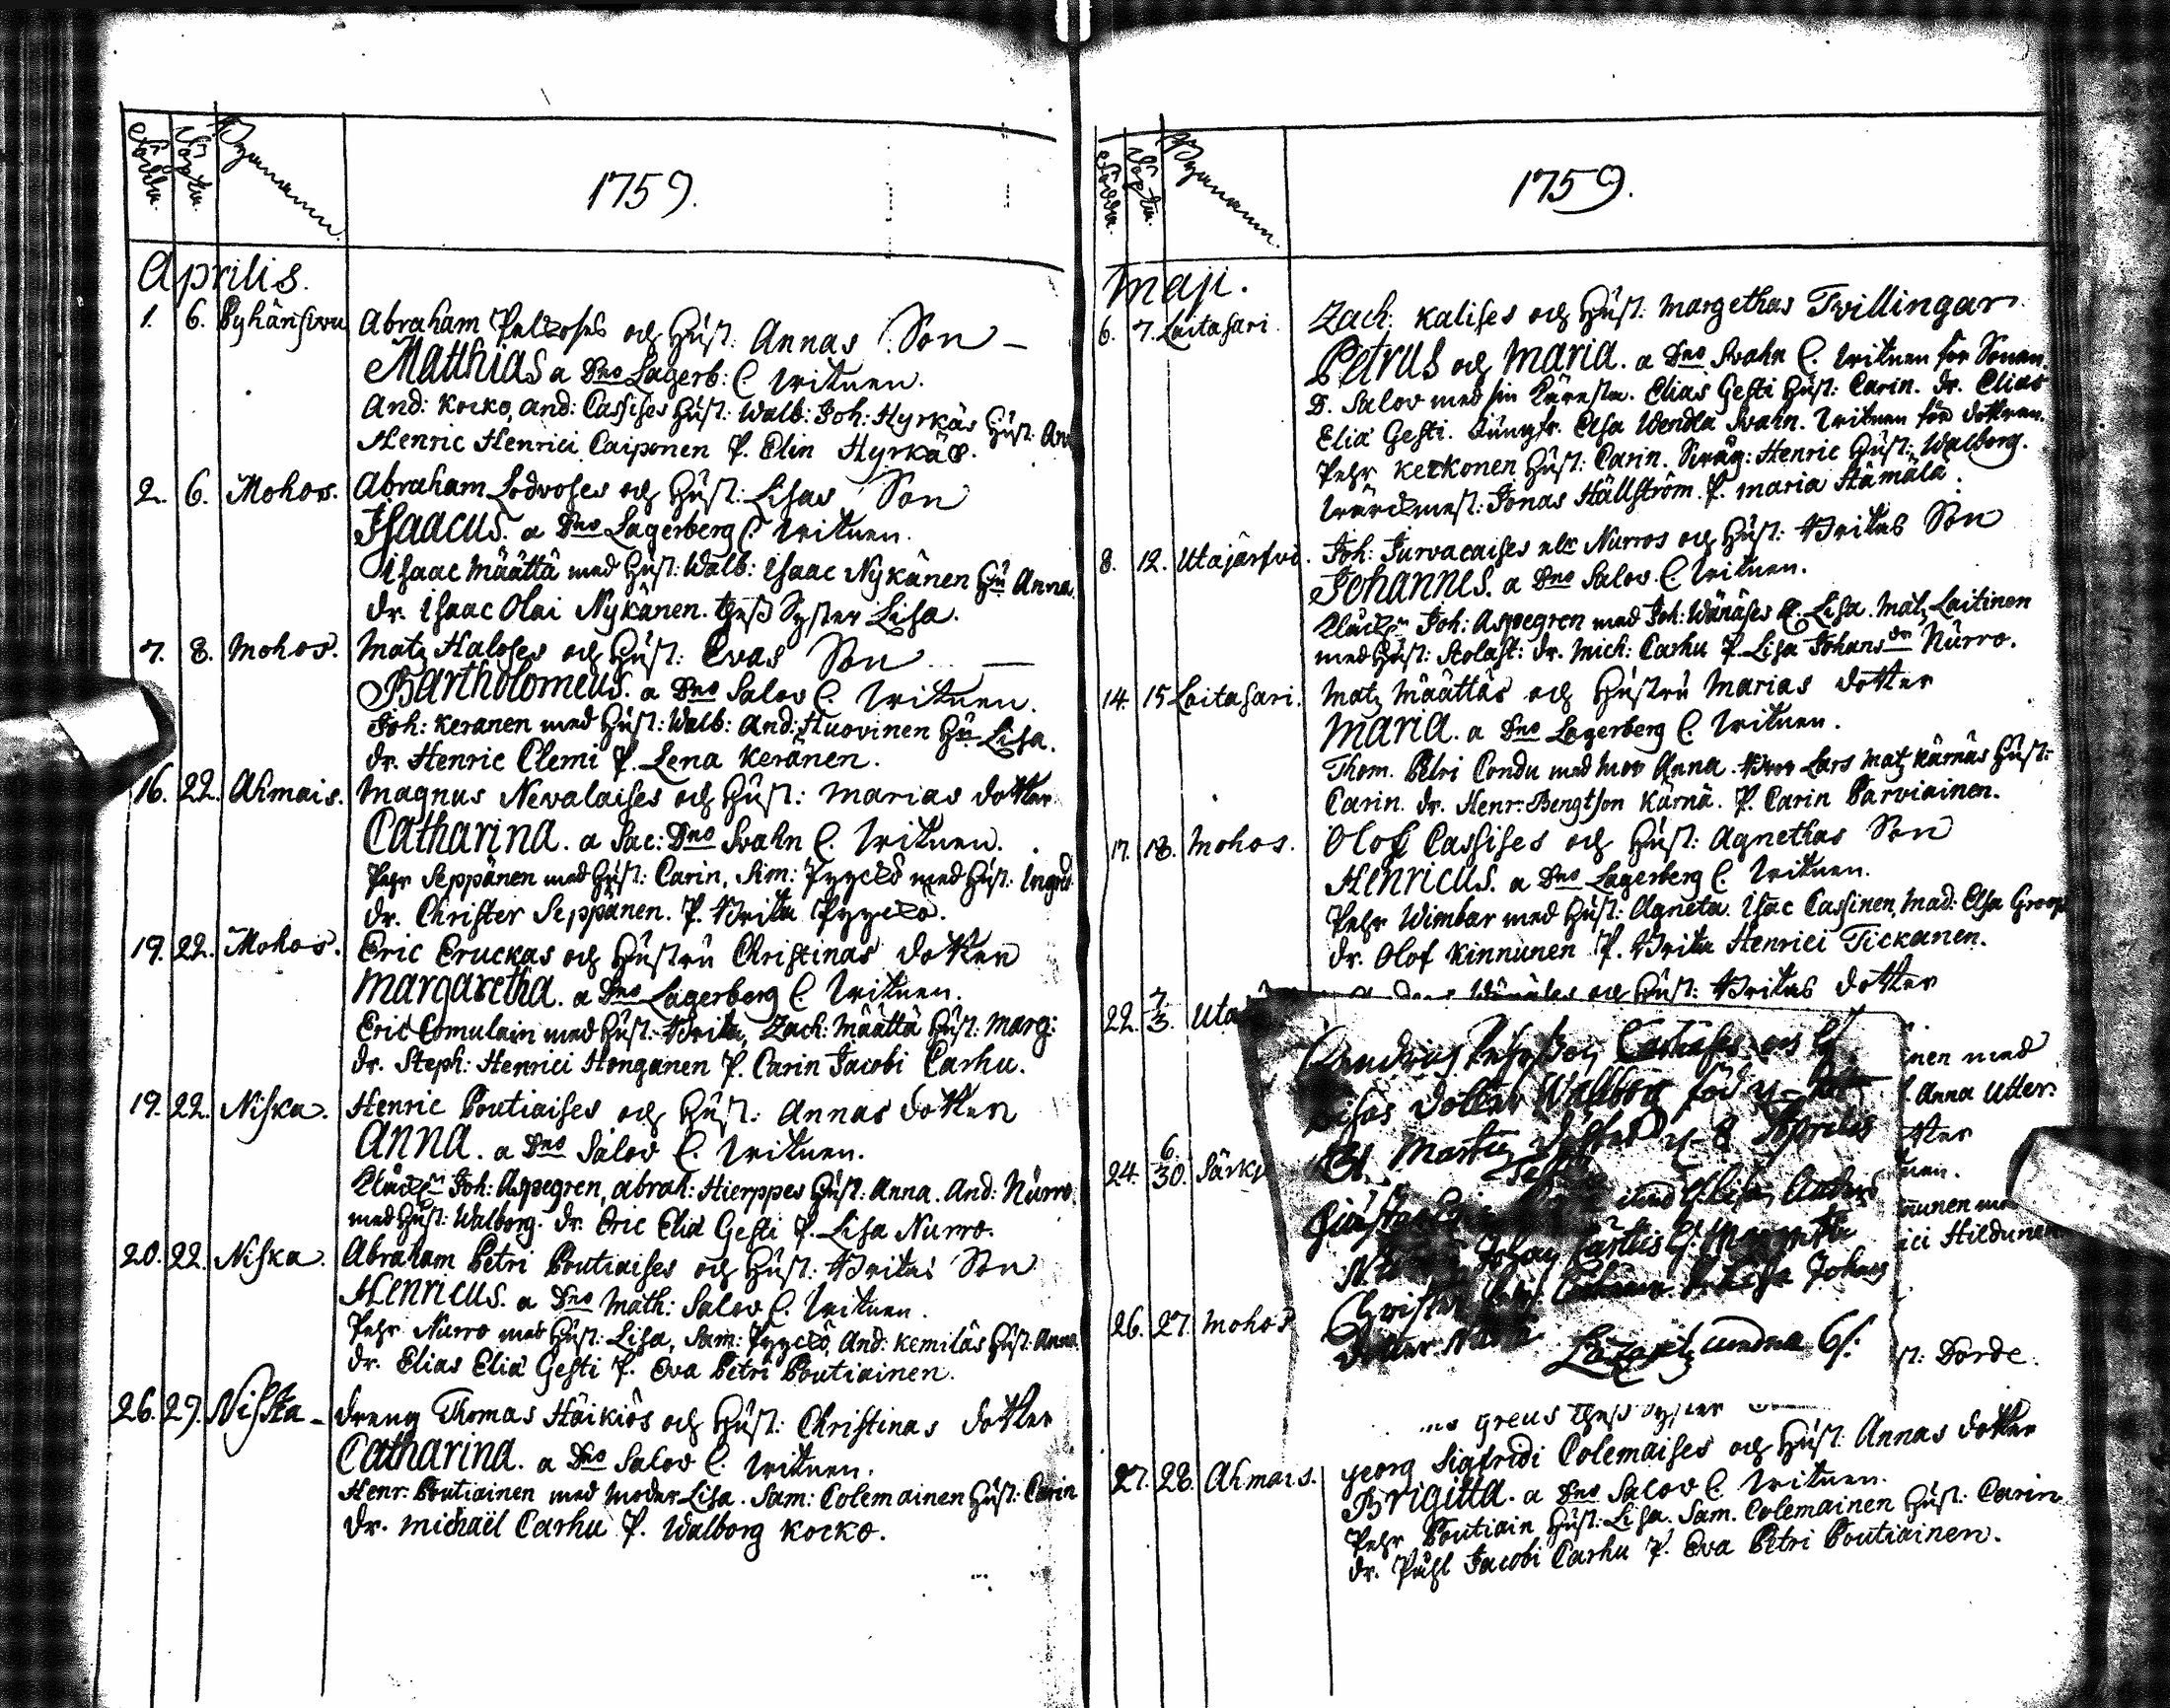 Födde.
Döpte.
Bynamn.
1759.
Aprilis.
1. 6. Pyhänsivu Abraham Pelkoses och Hust: Annas Son
Matthias a Dno Lagerb: C. Witnen.
And: Kocko, And: Cassises Hust: Walb: Joh: Hyrkäs Hust:
Henric Henrici Caiponen P. Elin Hyrkäs.
2. 6. Mohos. Abraham Lodvoses och Hust: Lisas Son
Isaacus. a Dno Lagerberg C. Witnen.
Isaac Määttä med Hust: Walb: Isaac Nykänen Hu Anna.
dr. Isaac Olai Nykänen. thess Syster Lisa.
7. 8. Mohos. Matz Haloses och Hust: Evas Son
Bartholomeus. a Dno Salov C. Witnen.
Joh: Keranen med Hust: Walb: And: Huovinen Hu Lisa.
dr. Henric Clemi P. Lena Keränen.
16. 22. Ahmais. Magnus Nevalaises och Hust: Marias dotter
Catharina. a Sac: Dno Svahn C. Witnen.
Pehr Seppänen med Hust: Carin, Sim: Pyyckö med Hust: Ingrid
dr. Christer Seppänen. P. Brita Pyycko.
19. 22. Mohos. Eric Eruckas och Hustru Christinas dotter
Margaretha. a Dno Lagerberg C. Witnen.
Eric Comulain med Hust: Brita, Zach: Määttä Hust: Marg:
dr. Steph: Henrici Honganen P. Carin Jacobi Carhu.
19. 22. Niska. Henric Poutiaises och Hust: Annas dotter
Anna. a Dno Salov C. Witnen.
Joh: Aspegren, Abrah: Hierppes Hust: Anna. And: Nurro
med Hust: Walborg. dr. Eric Eliä Gesti P. Lisa Nurro.
20. 22. Niska. Abraham Petri Poutiaises och Hust: Britas Son
Henricus. a Dno Math: Salov C. Witnen.
Pehr Nurro med Hust: Lisa, Sam: Pyyckö, And: Kemiläs Hust: Anna.
dr. Elias Eliä Gesti P. Eva Petri Poutiainen.
26. 29. Niska dreng Thomas Häikiös och Hust: Christinas dotter
Catharina. a Dno Salov C. Witnen.
Henr: Poutiainen med Moder Lisa. Sam: Colemainen Hust: Carin
dr. Michaël Carhu P. Walborg Kocko.
Födde.
Döpte.
Bynamn.
1759.
Maji.
6. 7. Laitasari. Zach: Kalises och Hust: Margethas Tvillingar
Petrus och Maria. a Dno Svahn C. Witnen för Sonen.
D. Salov med sin Käresta. Elias Gesti Hust: Carin. dr. Elias
Eliä Gesti. Jungfr. Elsa Wendla Svahn. Witnen för dottren.
Pehr Keckonen Hust: Carin. Henric Hust: Walborg.
Jonas Hällström. P. Maria Hämälä.
8. 12. Utajärfvi. Joh: Jurvacaises Nurros och Hust: Britas Son
Johannes. a Dno Salov. C. Witnen.
Joh: Aspegren med Joh: Wänäses Lisa. Matz Laitinen
med Hust: dr. Mich: Carhu P. Lisa Johans dr Nurro.
14. 15 Laitasari. Matz Määttäs och Hustru Marias dotter
Maria. a Dno Lagerberg C. Witnen.
Thom. Petri Condu med Mor Anna. Lars Matz Kärnäs Hust:
Carin. dr. Henr: Bengtson Kärnä. P. Carin Parviainen.
17. 18. Mohos. Olof Cassises och Hust: Agnethas Son
Henricus. a Dno Lagerberg C. Witnen.
Pehr Wimbar med Hust: Agneta. Isac Cassinen, Mad: Elsa Groop
dr. Olof Kinnunen P. Brita Henrici Tickanen.
22. 7/3. Uta och Hust: Britas dotter
nen med
Anna Utter.
24. 6/30. Särki
tter
nen.
ici Hildunen
26. 27. Mohos
st: Dorde.
Lisas dotter Wallborg född
dotter 8 Aprilis
Johans
Greus thess Syster
27. 28. Ahmais. Georg Sigfridi Colemaises och Hust: Annas dotter
Brigitta. a Dno Salov C. Witnen.
Pehr Poutiain Hust: Lisa. Sam. Colemainen Hust: Carin
dr. Påhl Jacobi Carhu P. Eva Petri Poutiainen.